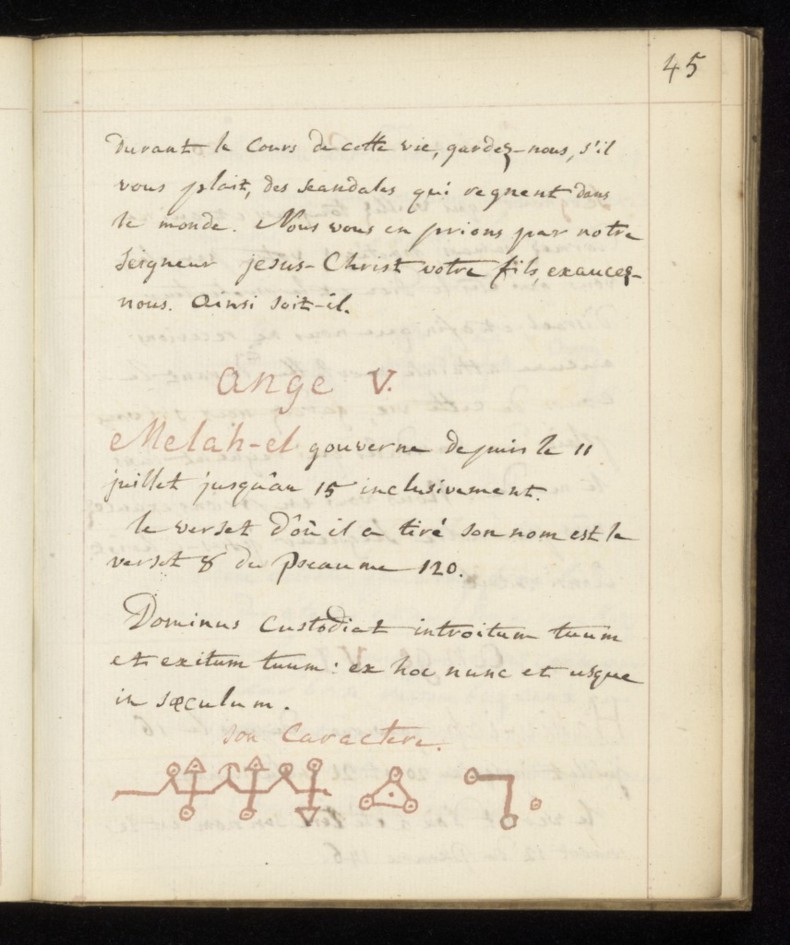 45
Durant le Cours de cette vie, gardez-nous, s'il
vous plait, des scandales qui regnent dans
le monde. Nous vous en prions par notre
Seigneur jesus-Christ votre fils, exaucez-
nous. Ainsi soit-il.
Ange V.
Melah-el gouverne depuis le 11
juillet jusqu'au 15 inclusivement.
le verset d'où il a tiré son nom est le
verset 8 du Pseaume 120.
Dominus Custodiat introitum tuum
et exitum tuum: ex hoc nunc et usque
in sæculum.
son Caractere.